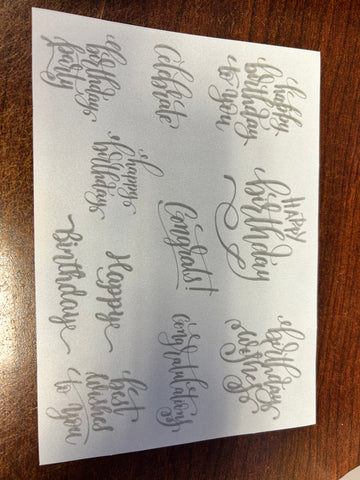 happy
birthday
to you
HAPPY
birthday
birthday
wishes
Celebrate
Congrats!
congratulations
happy
birthday
birthday
party
Happy
Birthday
best
wishes
to you